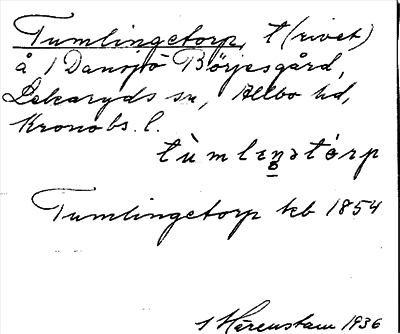 Tumlingetorp, t(rivet)
å 1 Dansjö Börjesgård,
Lekaryds sn, Allbo hd,
Kronobs. l.
tùmlεŋətórp
Tumlingetorp kb 1854
Härenstam 1936